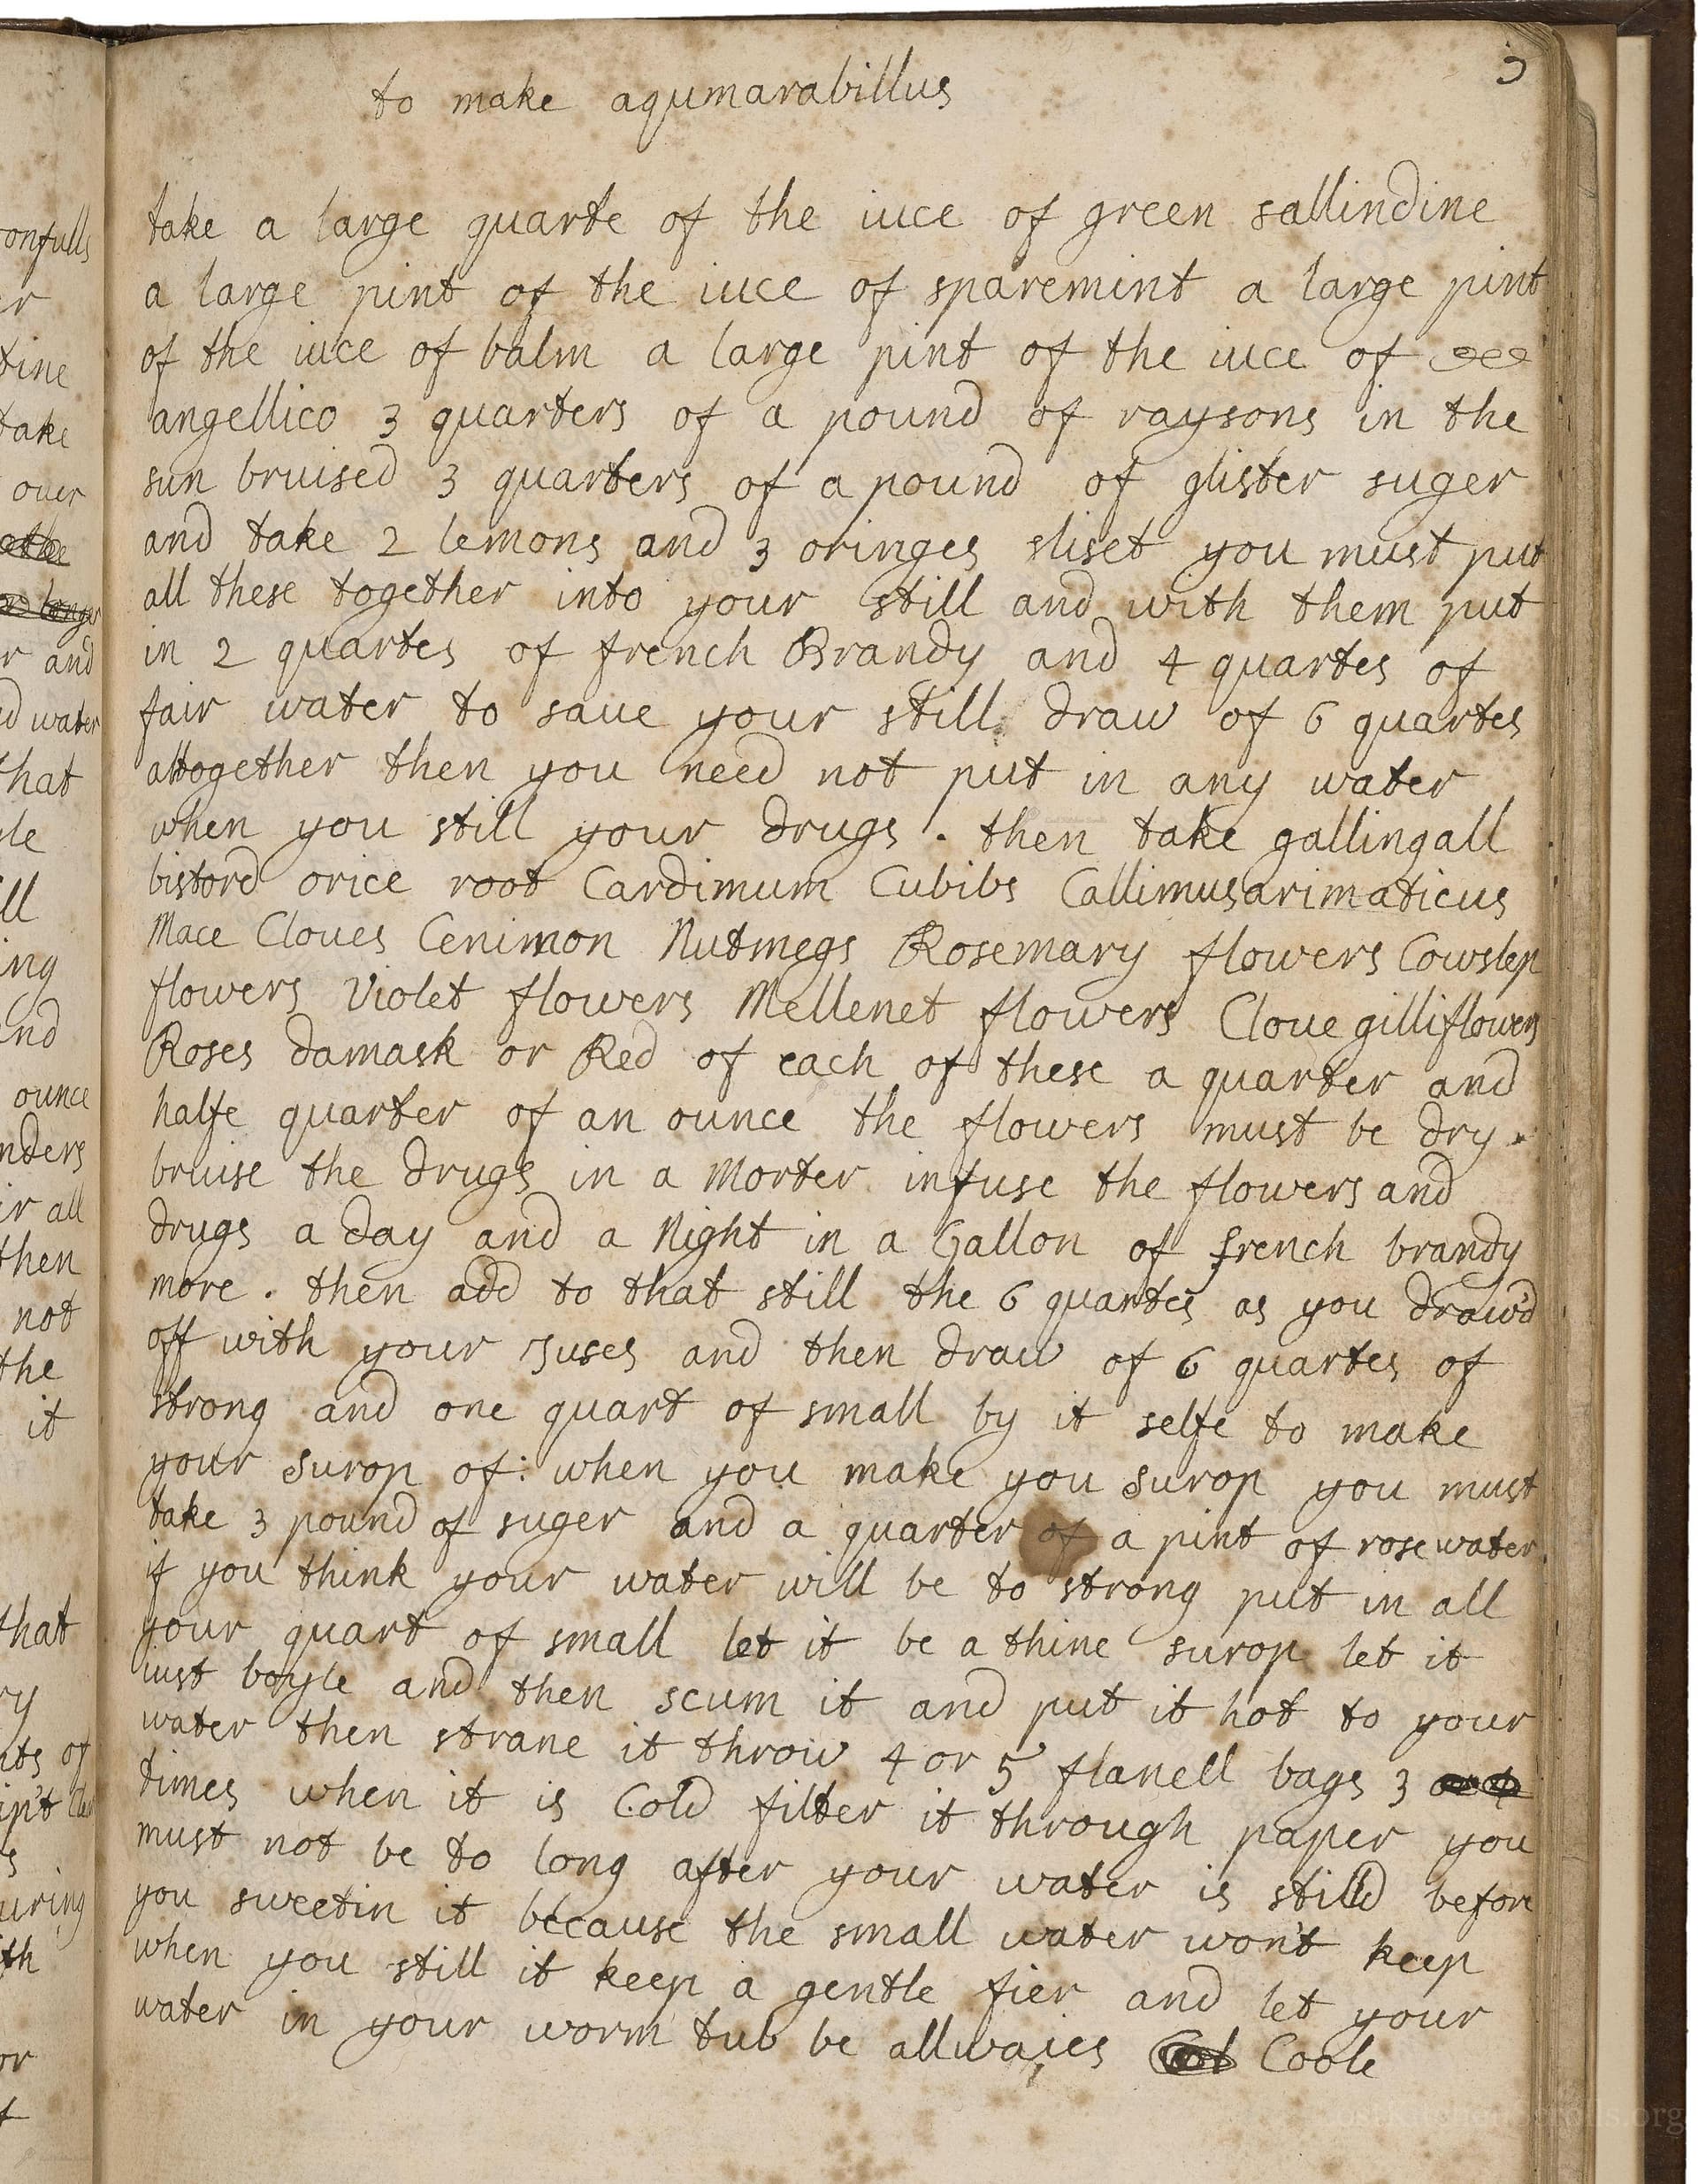 3
to make aqumarabillus
take a large quarte of the iuce of green sallindine
a large pint of the iuce of sparemint a large pint
of the iuce of balm a large pint of the iuce of
angellico 3 quarters of a pound of raysons in the
sun bruised 3 quarters of a pound of glister suger
and take 2 lemons and 3 oringes sliset you must put
all these together into your still and with them put
in 2 quartes of french Brandy and 4 quartes of
fair water to saue your still draw of 6 quartes
altogether then you need not put in any water
when you still your drugs . then take gallingall
bistord orice root Cardimum Cubibs Callimusarimaticus
Mace Cloues Cenimon Nutmegs Rosemary flowers Cowslep
flowers Violet flowers Mellenet flowers Cloue gilliflowers
Roses damask or Red of each of these a quarter and
halfe quarter of an ounce the flowers must be dry .
bruise the drugs in a Morter infuse the flowers and
drugs a day and a Night in a Gallon of french brandy
more . then add to that still the 6 quartes as you draw'd
off with your Juses and then draw of 6 quartes of
strong and one quart of small by it selfe to make
your surop of: when you make you surop you must
take 3 pound of suger and a quarter of a pint of rose water
if you think your water will be to strong put in all
your quart of small let it be a thine surop let it
iust boyle and then scum it and put it hot to your
water then strane it throw 4 or 5 flanell bags 3
times when it is Cold filter it through paper you
must not be to long after your water is stilld before
you sweetin it because the small water won't keep
when you still it keep a gentle fier and let your
water in your worm tub be allwaies Coole
onfulls
er
tine
take
ouer
r and
d water
that
le
ll
ing
and
ounce
nders
ir all
then
not
the
it
that
ry
nts of
s
uring
th
or